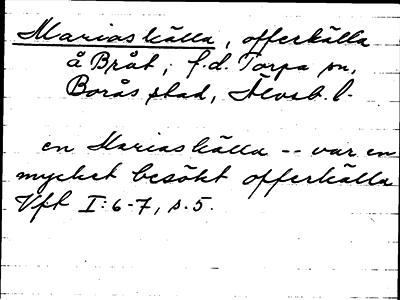 Mariaskälla, offerkälla
å Bråt, f.d. Torpa sn,
Borås stad, Älvsb. l.
en Mariaskälla -- var en
mycket besökt offerkälla
Vfl I:6-7, s.5.